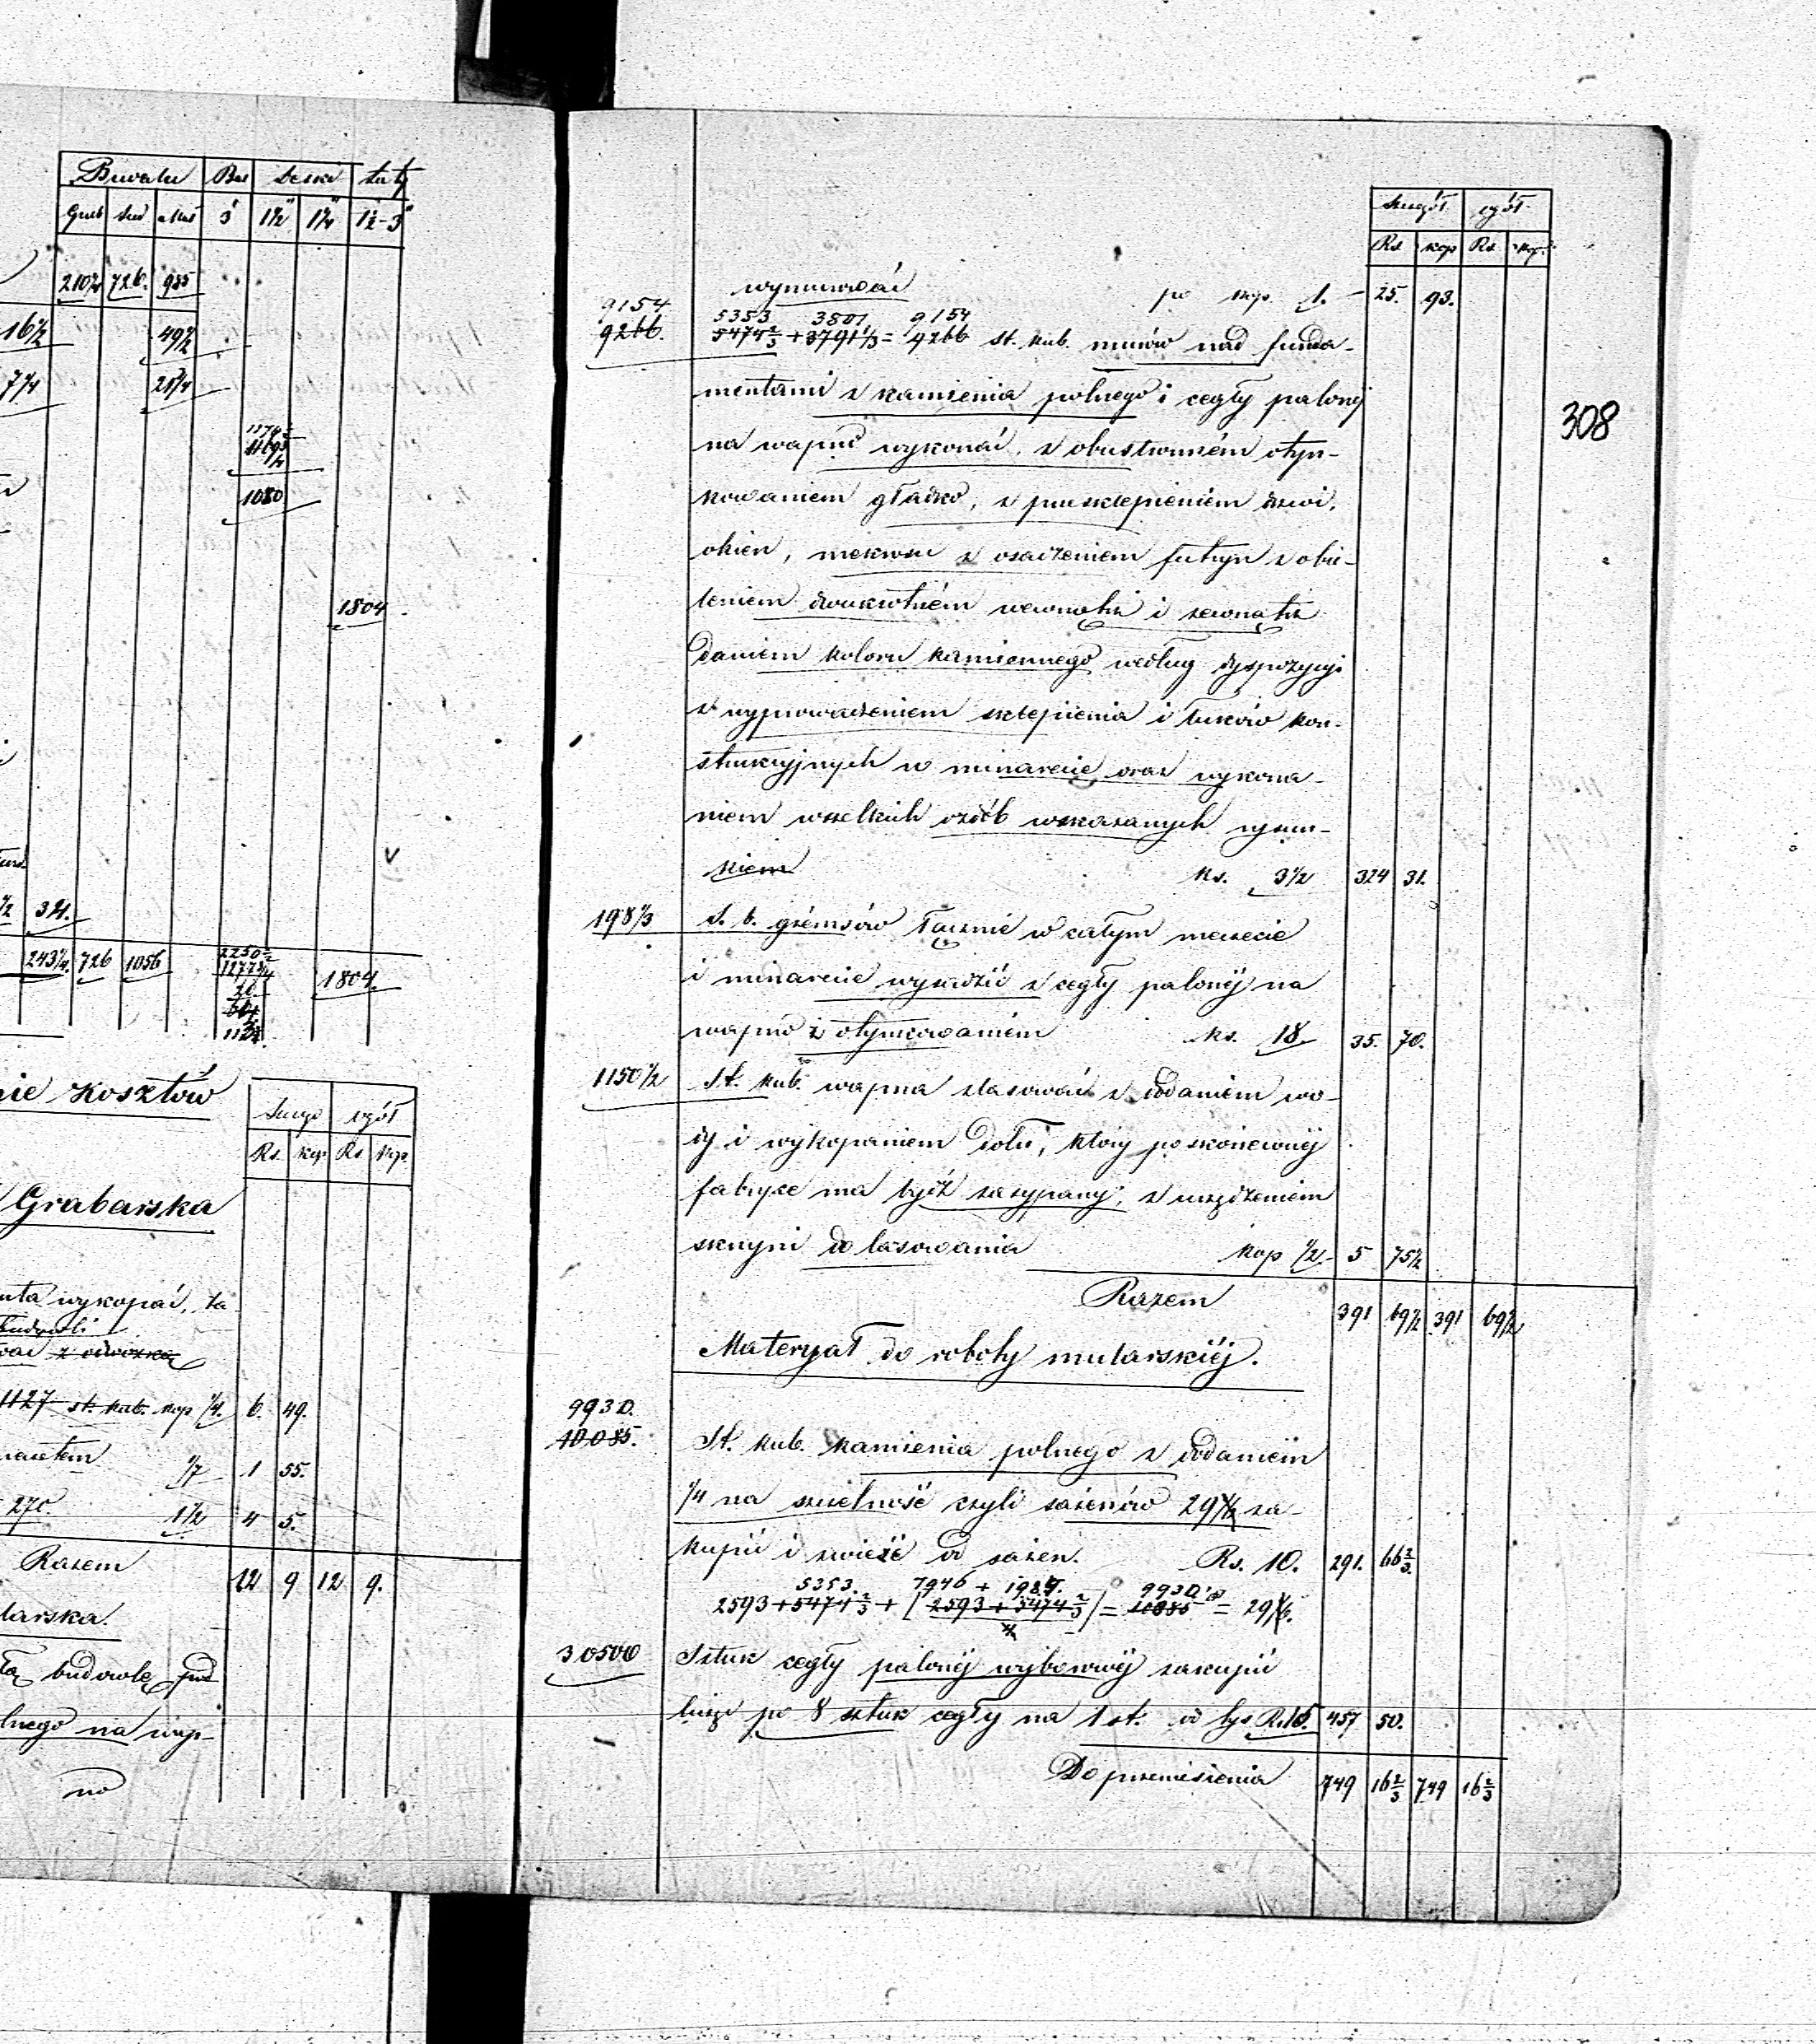 Buwalu Bal Deski Łaty
Grub śred Małe 3" 1½" 1¼" 1½-3"
210¼ 726. 955
16½ 49½
7¼ 21¼
1080
1804
½ 32.
243¼ 726 1056 1804.
nie Kosztów
Szczegó ogół
Rs. kop Rs kop
Grabarska
wykopać, za-
budowli
z odwózką
1127 st. kub. kop ¼. 6. 49.
1/7 1 55.
270. 1½ 4 5.
Razem 12 9 12 9.
larska.
budowlę pod
lnego na wap-
no
308
Szczegół ogół
Rs. kop Rs. kop.
wymurować po kop. 1. – 25. 93.
9154 5353 3801 9154
9266. 5474⅔ + 3791⅓ = 9266 st. kub. murów nad funda-
mentami z kamienia polnego i cegły palonéj
na wapno wykonać, z obustronném otyn-
kowaniem gładko, z przesklepieniem drzwi,
okien, z osadzeniem futryn z obie-
leniem dwukrotném wewnątrz i zewnątrz
daniem koloru kamiennego według dyspozycyi
z wyprowadzeniem sklepienia i łuków kon-
strukcyjnych w minarecie oraz wykona-
niem wszelkich ozdób wskazanych rysun-
kiem ks. 3½ 324 31.
198⅓ S. b. gzémsów łącznie w całym meczecie
i minarecie wysadzić z cegły palonéj na
wapno z otynkowaniem ks. 18. 35. 70.
1150½ St. kub. wapna zlasować z dodaniem wo-
dy i wykopaniem dołu, który po skończonéj
fabryce ma być zasypany, z urządzeniem
skrzyni do lasowania kop ½ 5 75½
Razem 391 69½ 391 69½
Materyał do roboty mularskiéj.
9930.
10085. St. kub. kamienia polnego z dodaniem
¼ na szczelność czyli sażenów 29 1/6 za-
kupić i zwieźć od sażen. Rs. 10. 291. 66⅔
5353. 7946 + 1987. 9930
2593 + 5474⅔ + (2593 + 5474⅔) = 10085 = 29 1/6.
4
30500 Sztuk cegły palonéj wyborowéj zakupić
licząc po 8 sztuk cegły na 1 st. od tys Rs. 15. 457 50.
Do przeniesienia 749 16⅔ 749 16⅔